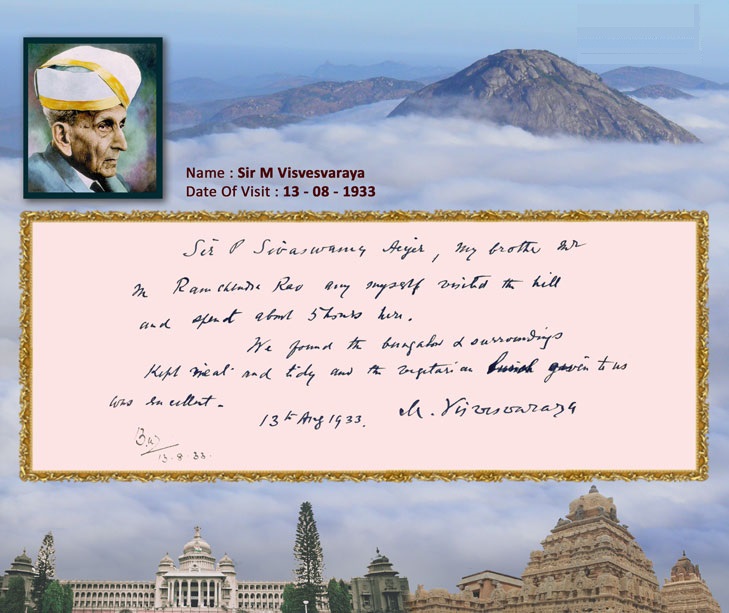 Name : Sir M Visvesvaraya
Date Of Visit : 13 - 08 - 1933
Sir P Sivaswamy Aiyer, my brother Mr
M Ramchendra Rao any myself visited the hill
and spent about 5 hours here.
We found the bungalow & surroundings
Kept neat and tidy and the vegetarian lunch given to us
was excellent.
13th Aug 1933. M. Visvesvaraya
13.8.33.